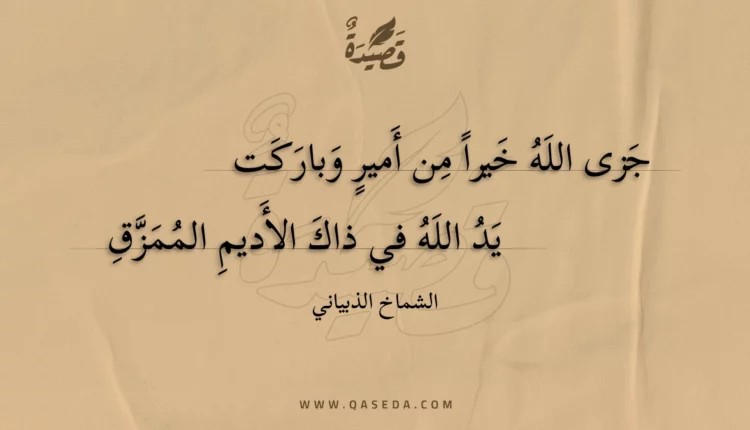 قَصِيْدَةٌ
جَزى اللَهُ خَيراً مِن أَميرٍ وَبارَكَت
يَدُ اللَهُ في ذاكَ الأَديمِ المُمَزَّقِ
الشماخ الذبياني
WWW.QASEDA.COM